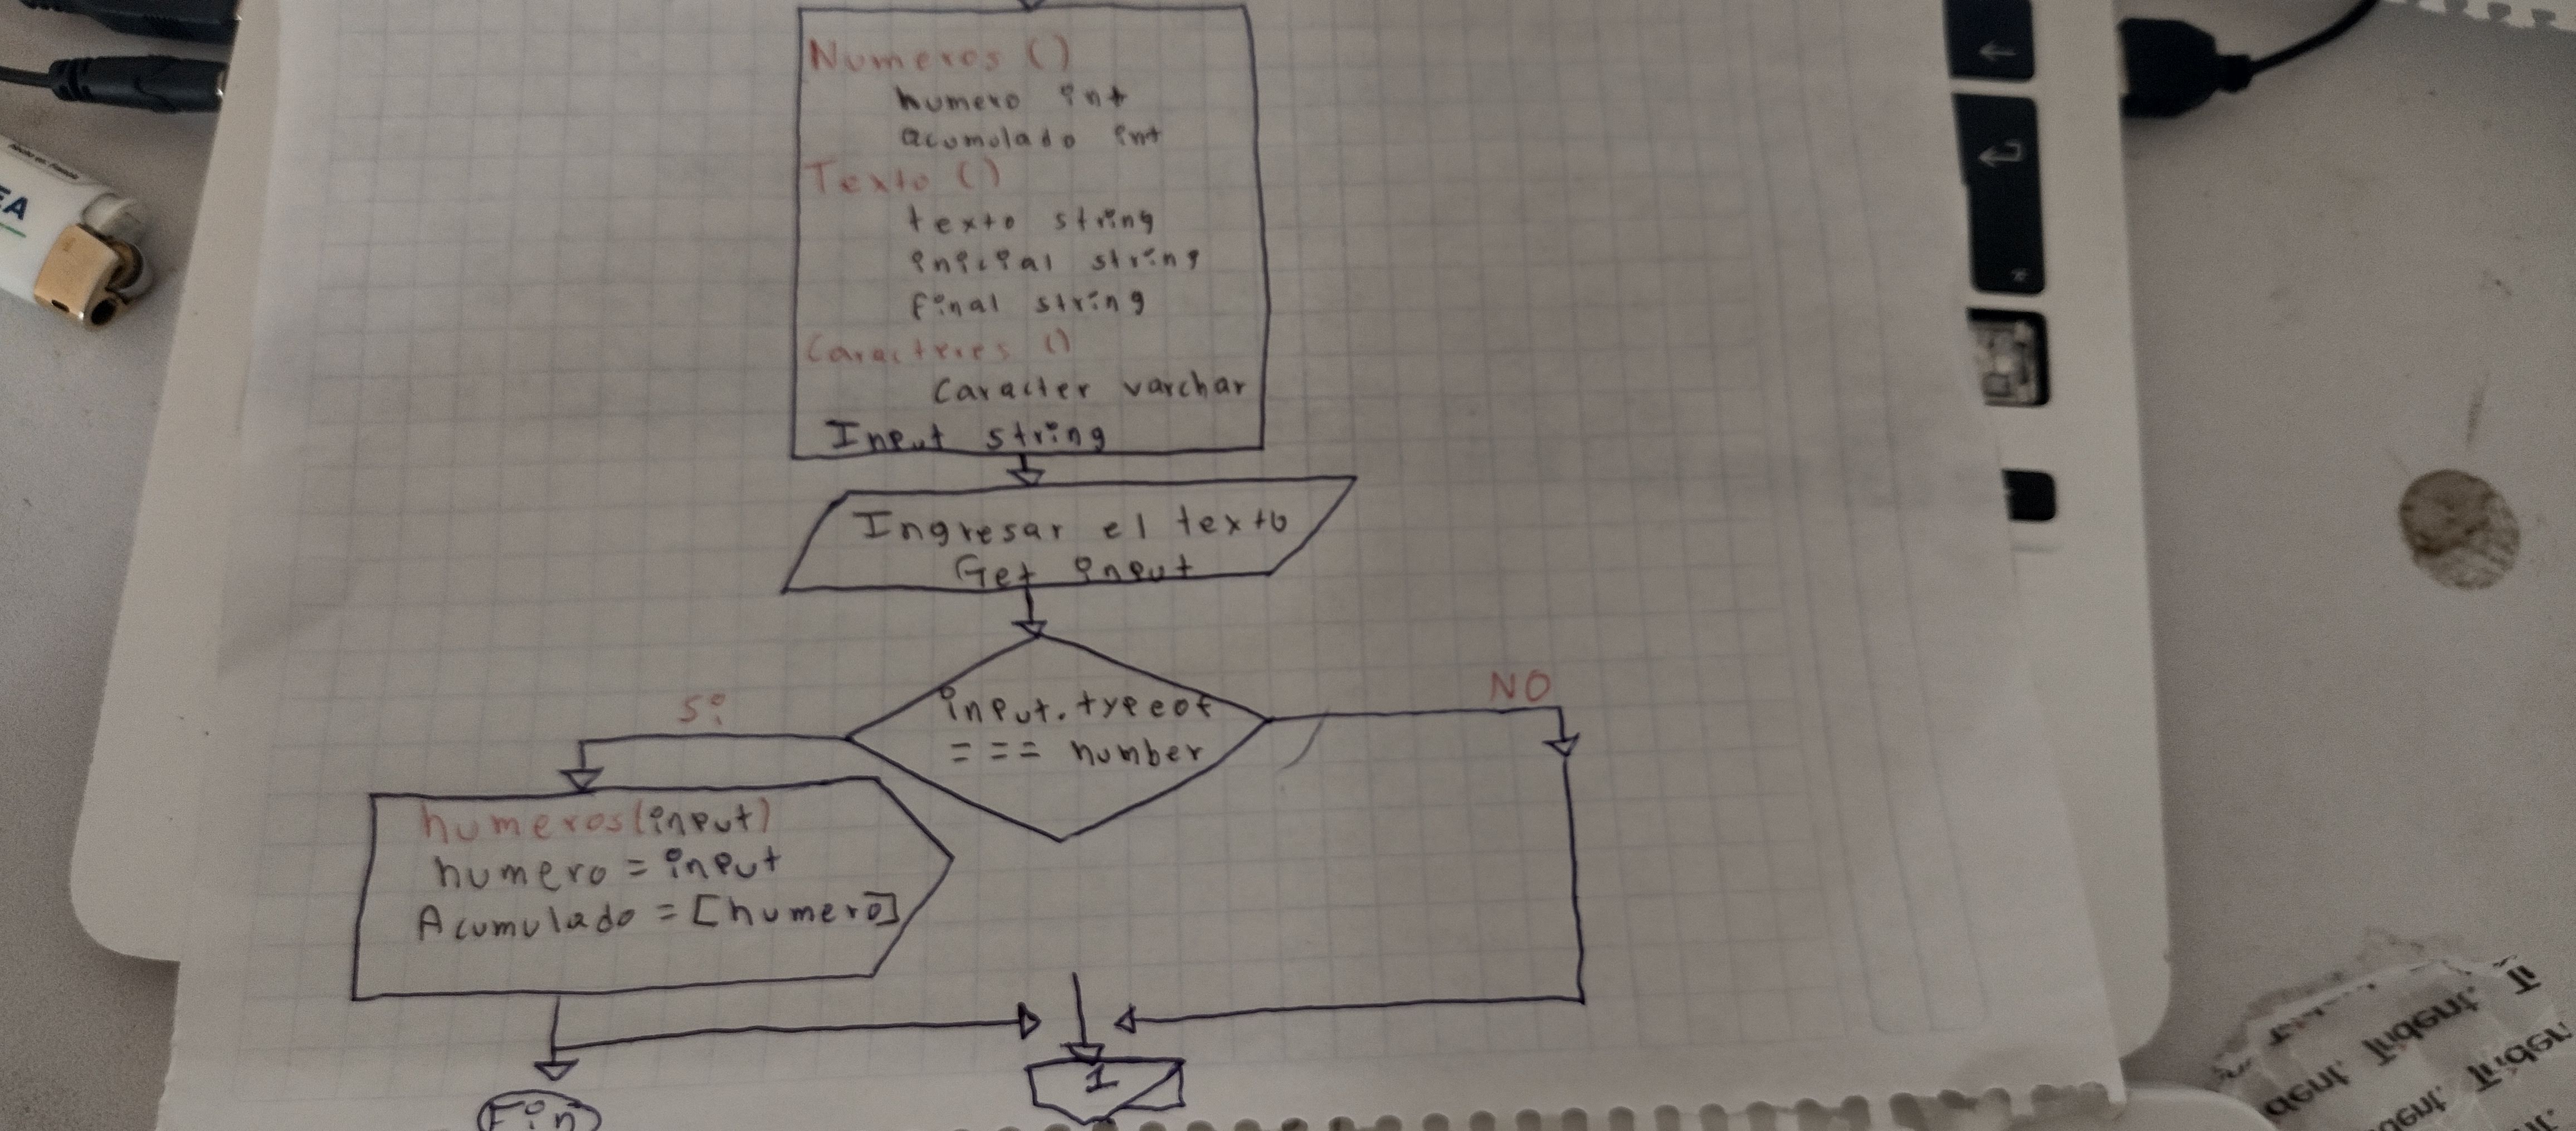 Numeros ()
numero int
acumulado int
Texto ()
texto string
inicial string
final string
Caracteres ()
Caracter varchar
Input string
Ingresar el texto
Get input
input.typeof
=== number
Si
NO
numeros(input)
numero = input
Acumulado = [numero]
Fin
I
Trident.
dent. Trident. Tr
dent. Triden